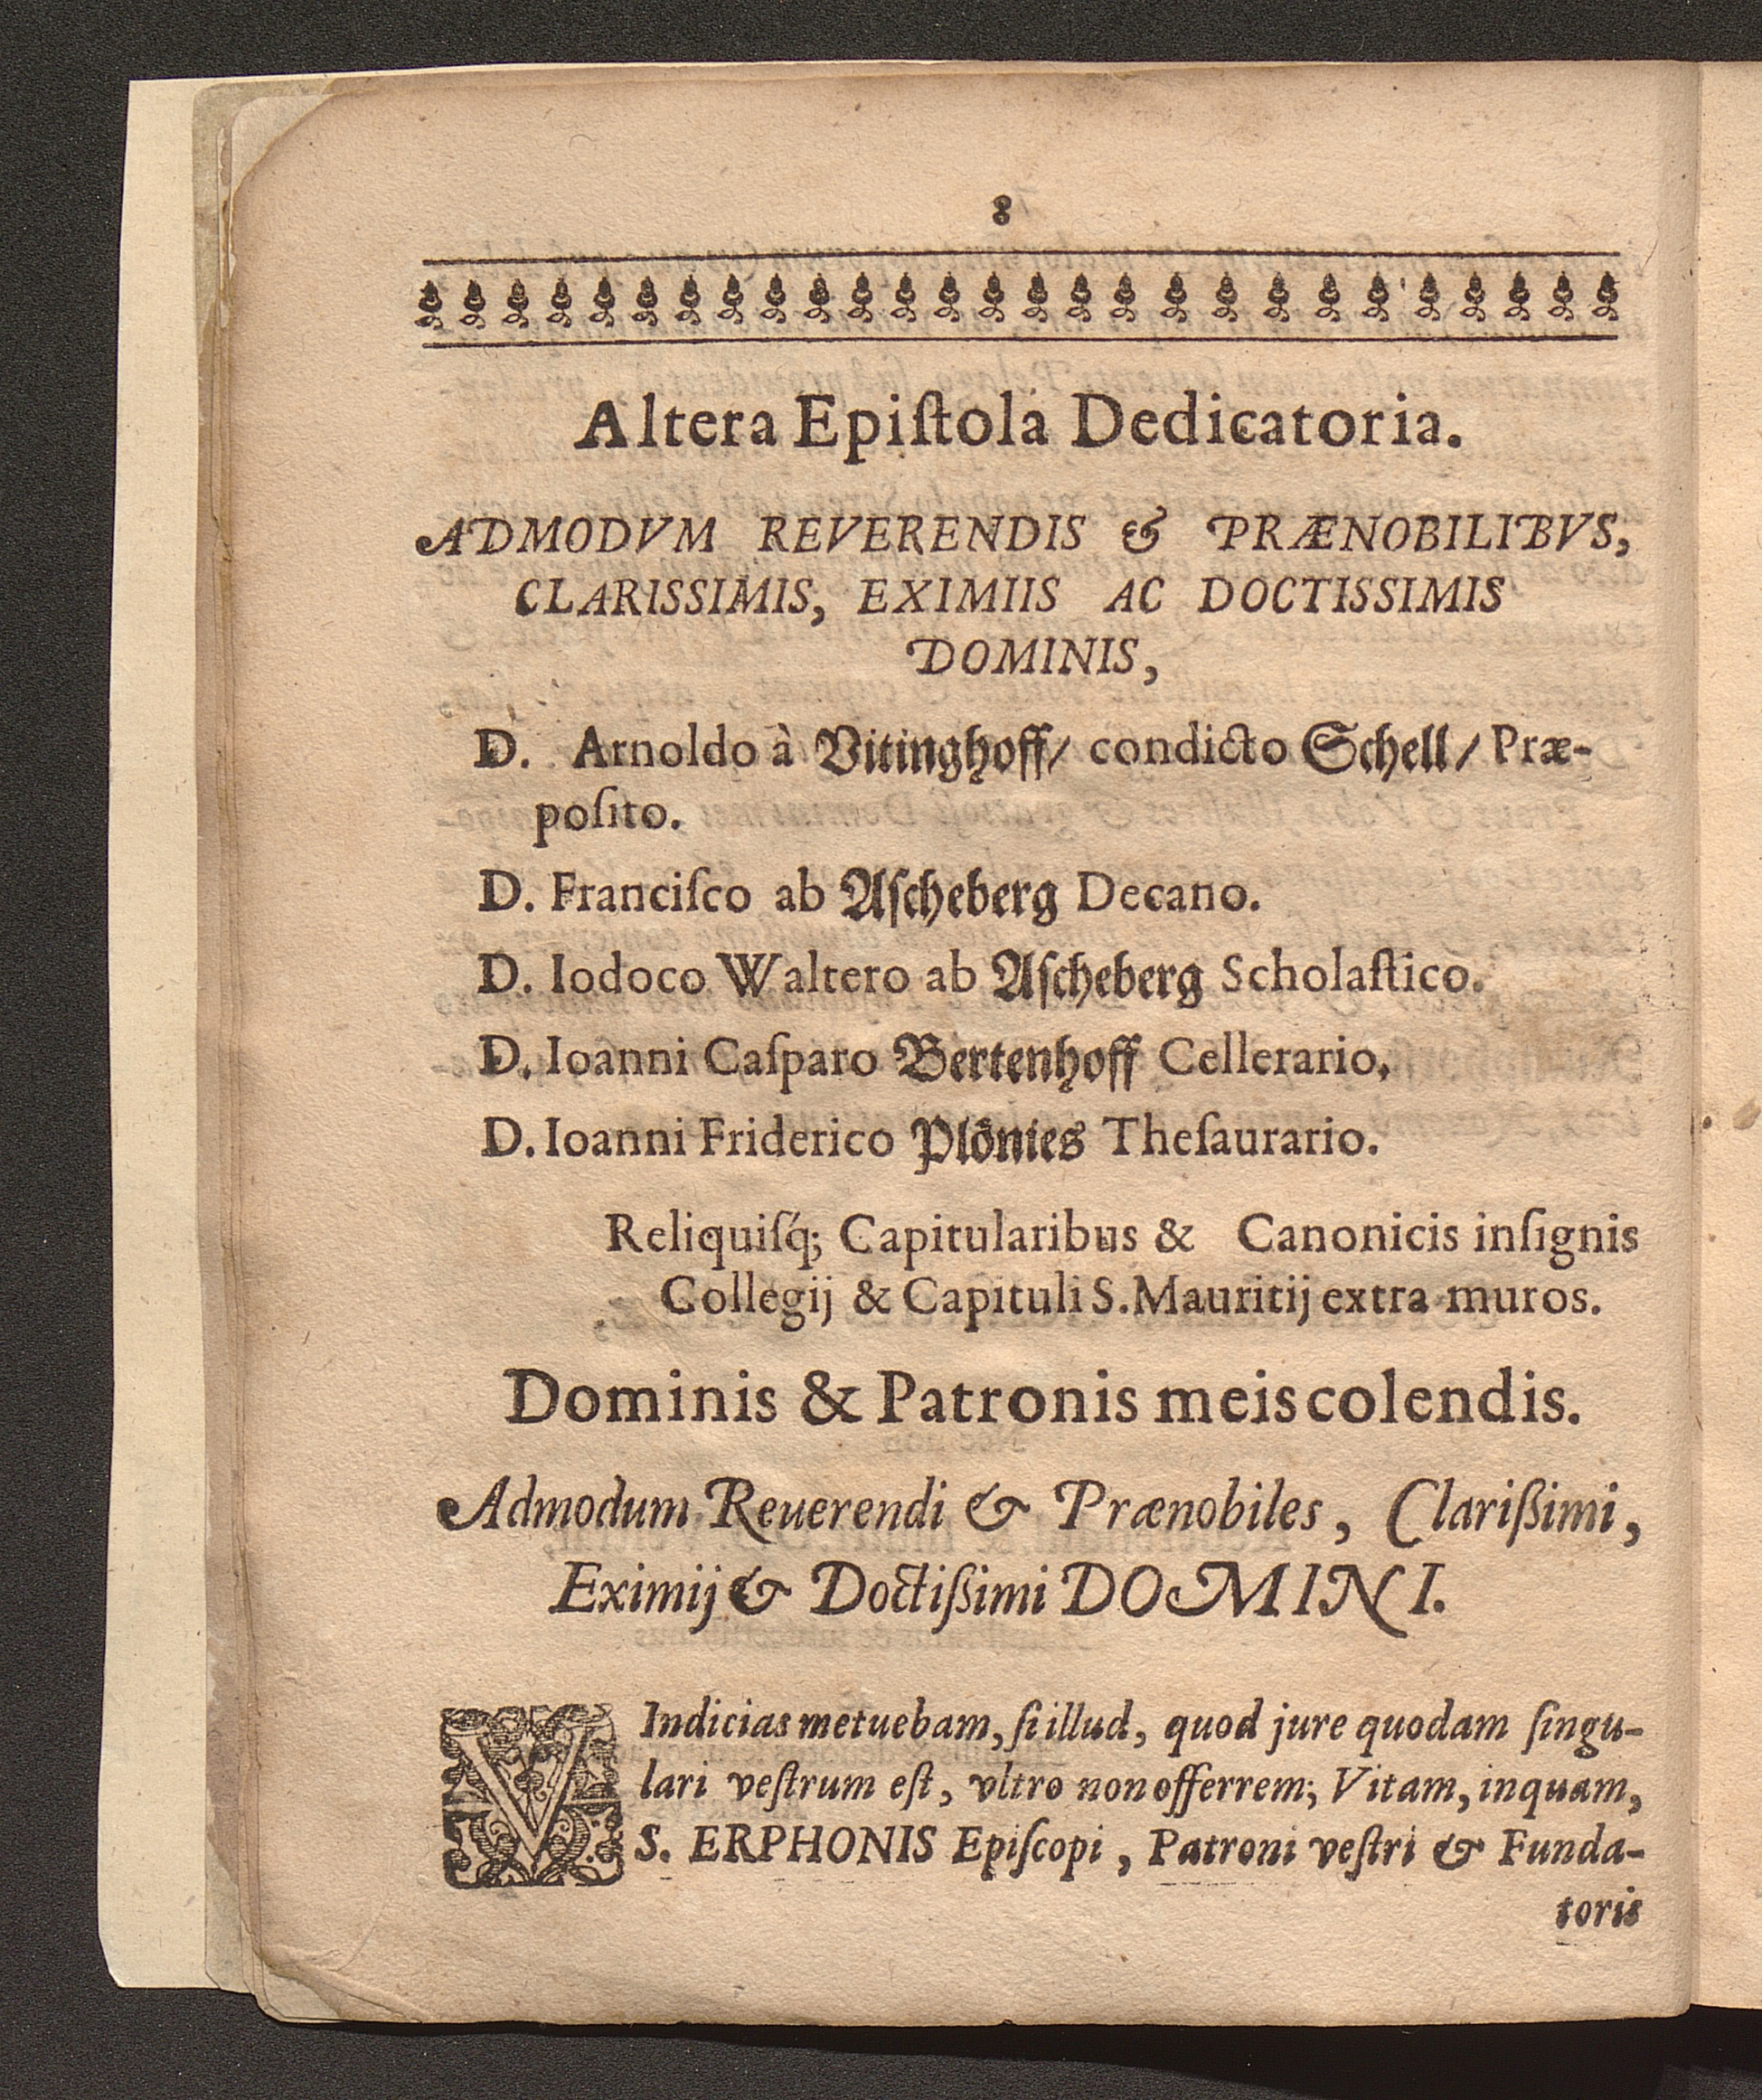 8
Altera Epiſtola Dedicatoria.
ADMODVM REVERENDIS & PRÆNOBILIBVS,
CLARISSIMIS, EXIMIIS AC DOCTISSIMIS
DOMINIS,
D. Arnoldo à Vitinghoff/ condicto Schell/ Præ-
poſito.
D. Franciſco ab Aſcheberg Decano.
D. Iodoco Waltero ab Aſcheberg Scholaſtico.
D. Ioanni Caſparo Bertenhoff Cellerario,
D. Ioanni Friderico Plönies Theſaurario.
Reliquiſq́; Capitularibus & Canonicis inſignis
Collegij & Capituli S. Mauritij extra muros.
Dominis & Patronis meis colendis.
Admodum Reuerendi & Prænobiles, Clarißimi,
Eximij & Doctißimi DOMINI.
VIndicias metuebam, ſi illud, quod jure quodam ſingu-
lari veſtrum eſt, vltro non offerrem; Vitam, inquam,
S. ERPHONIS Epiſcopi, Patroni veſtri & Funda-
toris